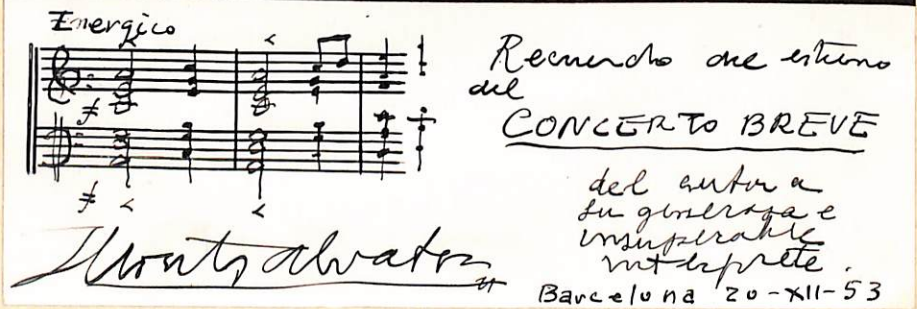 Energico
Recuerdo del estreno
del
CONCERTO BREVE
del autor a
su generosa e
insuperable
intérprete.
Montsalvatge
Barcelona 20-XII-53